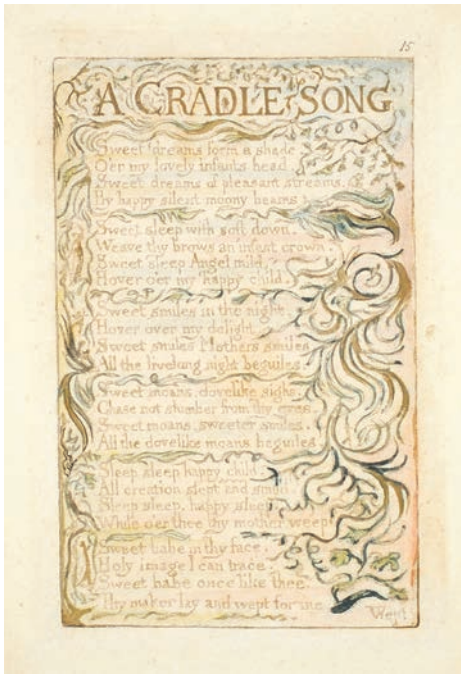 15
A CRADLE SONG
Sweet dreams form a shade
O'er my lovely infants head.
Sweet dreams of pleasant streams.
By happy silent moony beams
Sweet sleep with soft down.
Weave thy brows an infant crown.
Sweet sleep Angel mild,
Hover o'er my happy child.
Sweet smiles in the night.
Hover over my delight.
Sweet smiles Mothers smiles
All the livelong night beguiles.
Sweet moans, dovelike sighs.
Chase not slumber from thy eyes.
Sweet moans, sweeter smiles.
All the dovelike moans beguiles.
Sleep sleep happy child.
All creation slept and smil'd.
Sleep sleep, happy sleep,
While o'er thee thy mother weep
Sweet babe in thy face,
Holy image I can trace.
Sweet babe once like thee
Thy maker lay and wept for me
Wept